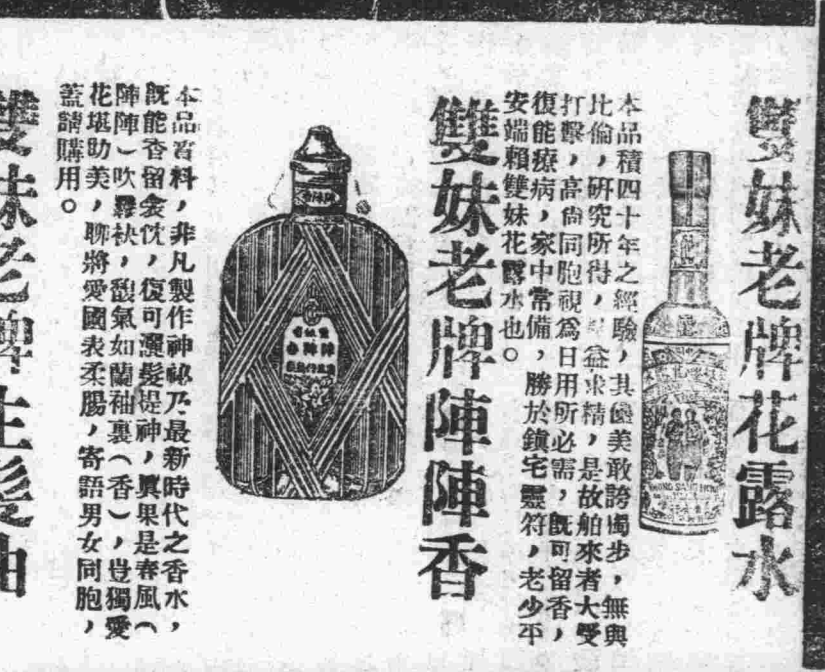 雙妹老牌花露水
本品積四十年之經驗，其優美敢誇獨步，無與
比倫，研究所得，益求精，是故舶來者大受
打擊，高尚同胞視爲日用所必需，既可留香，
復能療病，家中常備，勝於鎮宅靈符，老少平
安端賴雙妹花露水也。
雙妹老牌陣陣香
陣陣香
本品質料，非凡製作神祕乃最新時代之香水，
既能香留衾枕，復可灑髮提神，眞果是春風（
陣陣）吹羅袂，馥氣如蘭袖裏（香），豈獨愛
花堪助美，聊將愛國表柔腸，寄語男女同胞，
蓋請購用。
雙妹老牌生髮油